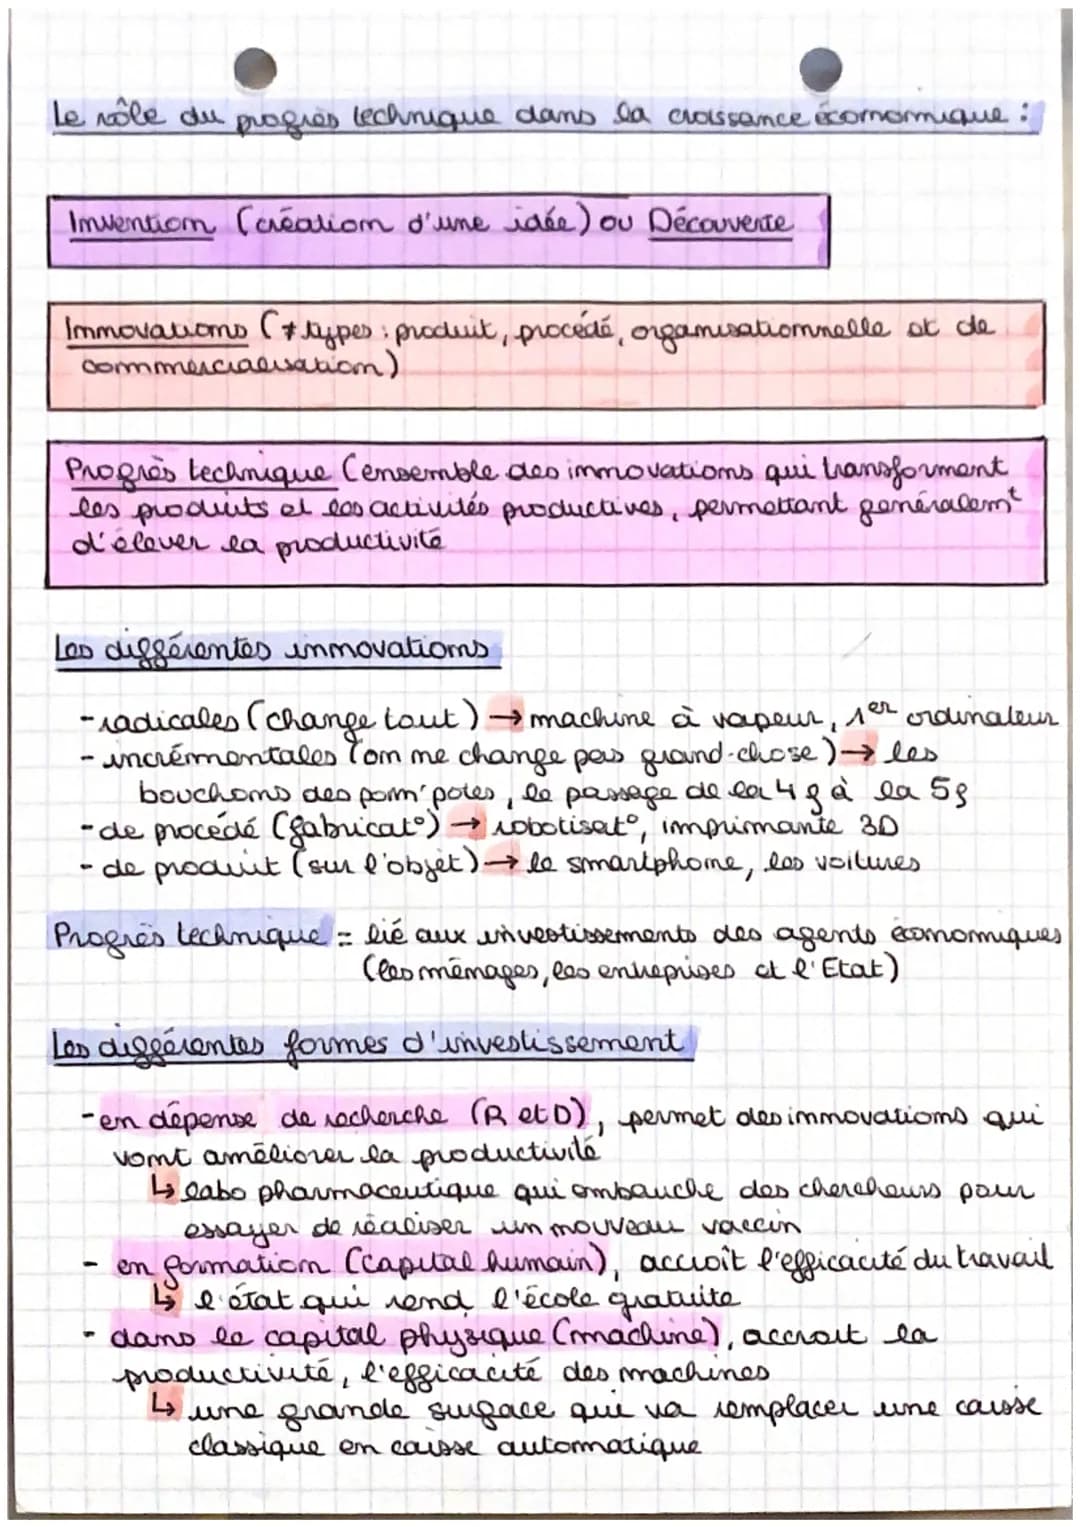 Le rôle du progrès technique dans la croissance économique :
Invention (création d'une idée) ou Découverte
Innovations (≠ types : produit, procédé, organisationnelle et de
commercialisation)
Progrès technique (ensemble des innovations qui transforment
les produits et les activités productives, permettant généralemt
d'élever la productivité
Les différentes innovations
- radicales (change tout) → machine à vapeur, 1er ordinateur
- incrémentales (on ne change pas grand-chose) → les
bouchons des pom'potes, le passage de la 4g à la 5g
- de procédé (fabricat°) → robotisat°, imprimante 3D
- de produit (sur l'objet) → le smartphone, les voitures
Progrès technique = lié aux investissements des agents économiques
(les ménages, les entreprises et l'Etat)
Les différentes formes d'investissement
- en dépense de recherche (R et D), permet des innovations qui
vont améliorer la productivité
↳ labo pharmaceutique qui embauche des chercheurs pour
essayer de réaliser un nouveau vaccin
- en formation (capital humain), accroît l'efficacité du travail
↳ l'état qui rend l'école gratuite
- dans le capital physique (machine), accroit la
productivité, l'efficacité des machines
↳ une grande surface qui va remplacer une caisse
classique en caisse automatique